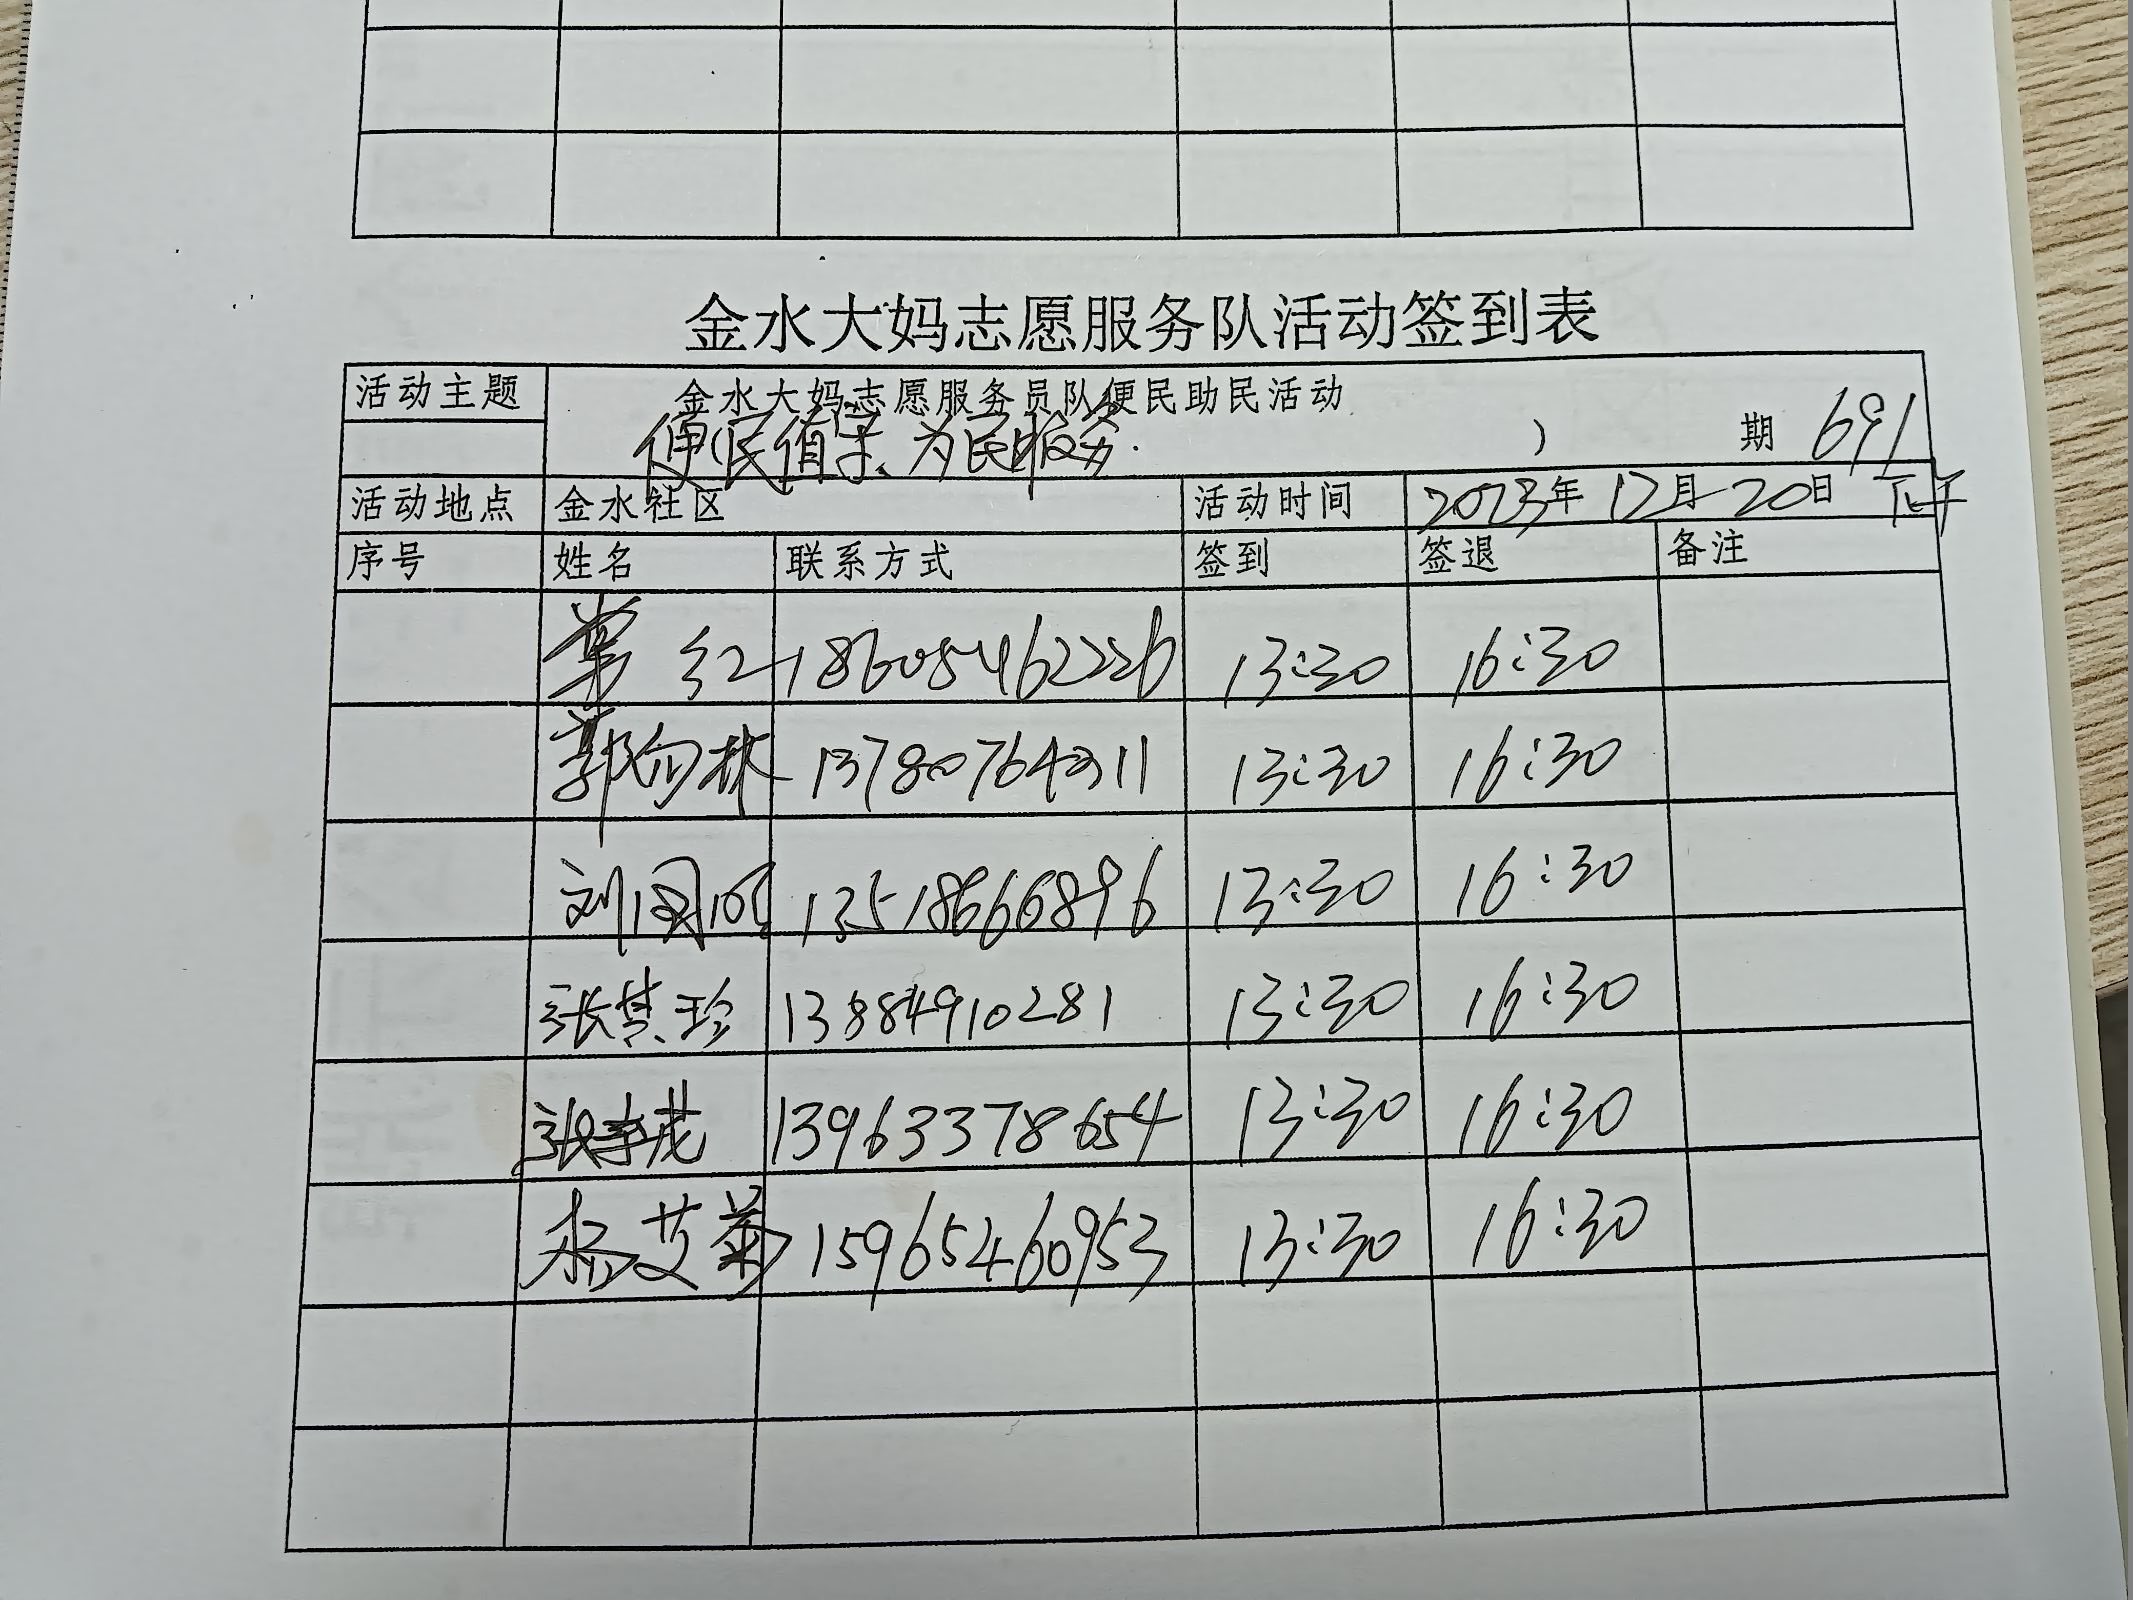 金水大妈志愿服务队活动签到表
活动主题 金水大妈志愿服务员队便民助民活动
便民值字、为民服务. ） 期 691
活动地点 金水社区 活动时间 2023年 12月 20日 下午
序号 姓名 联系方式 签到 签退 备注
红 18605462226 13:30 16:30
郭向林 13780764311 13:30 16:30
刘 13518666896 13:30 16:30
张其珍 13884910281 13:30 16:30
张孝茂 13963378654 13:30 16:30
杨艾菊 15965460953 13:30 16:30